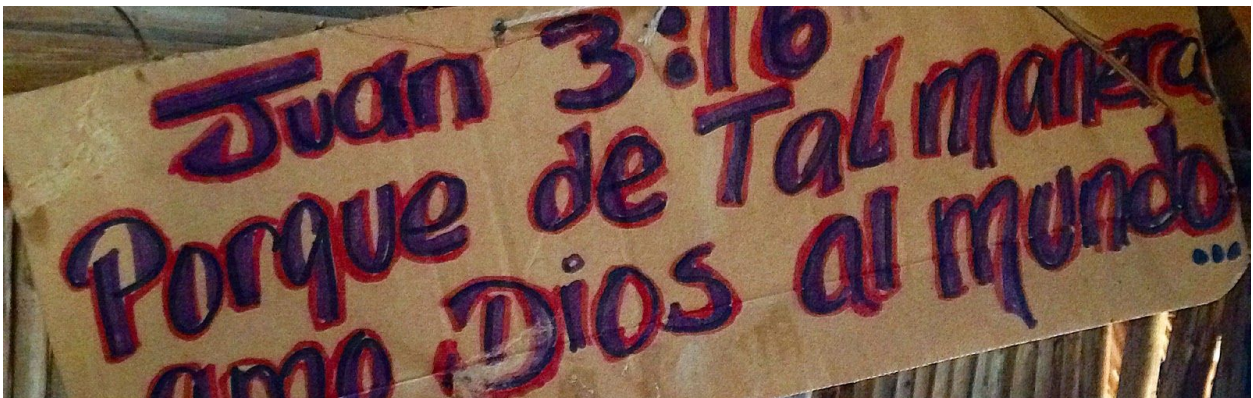 Juan 3:16
Porque de Tal manera
amo Dios al mundo...